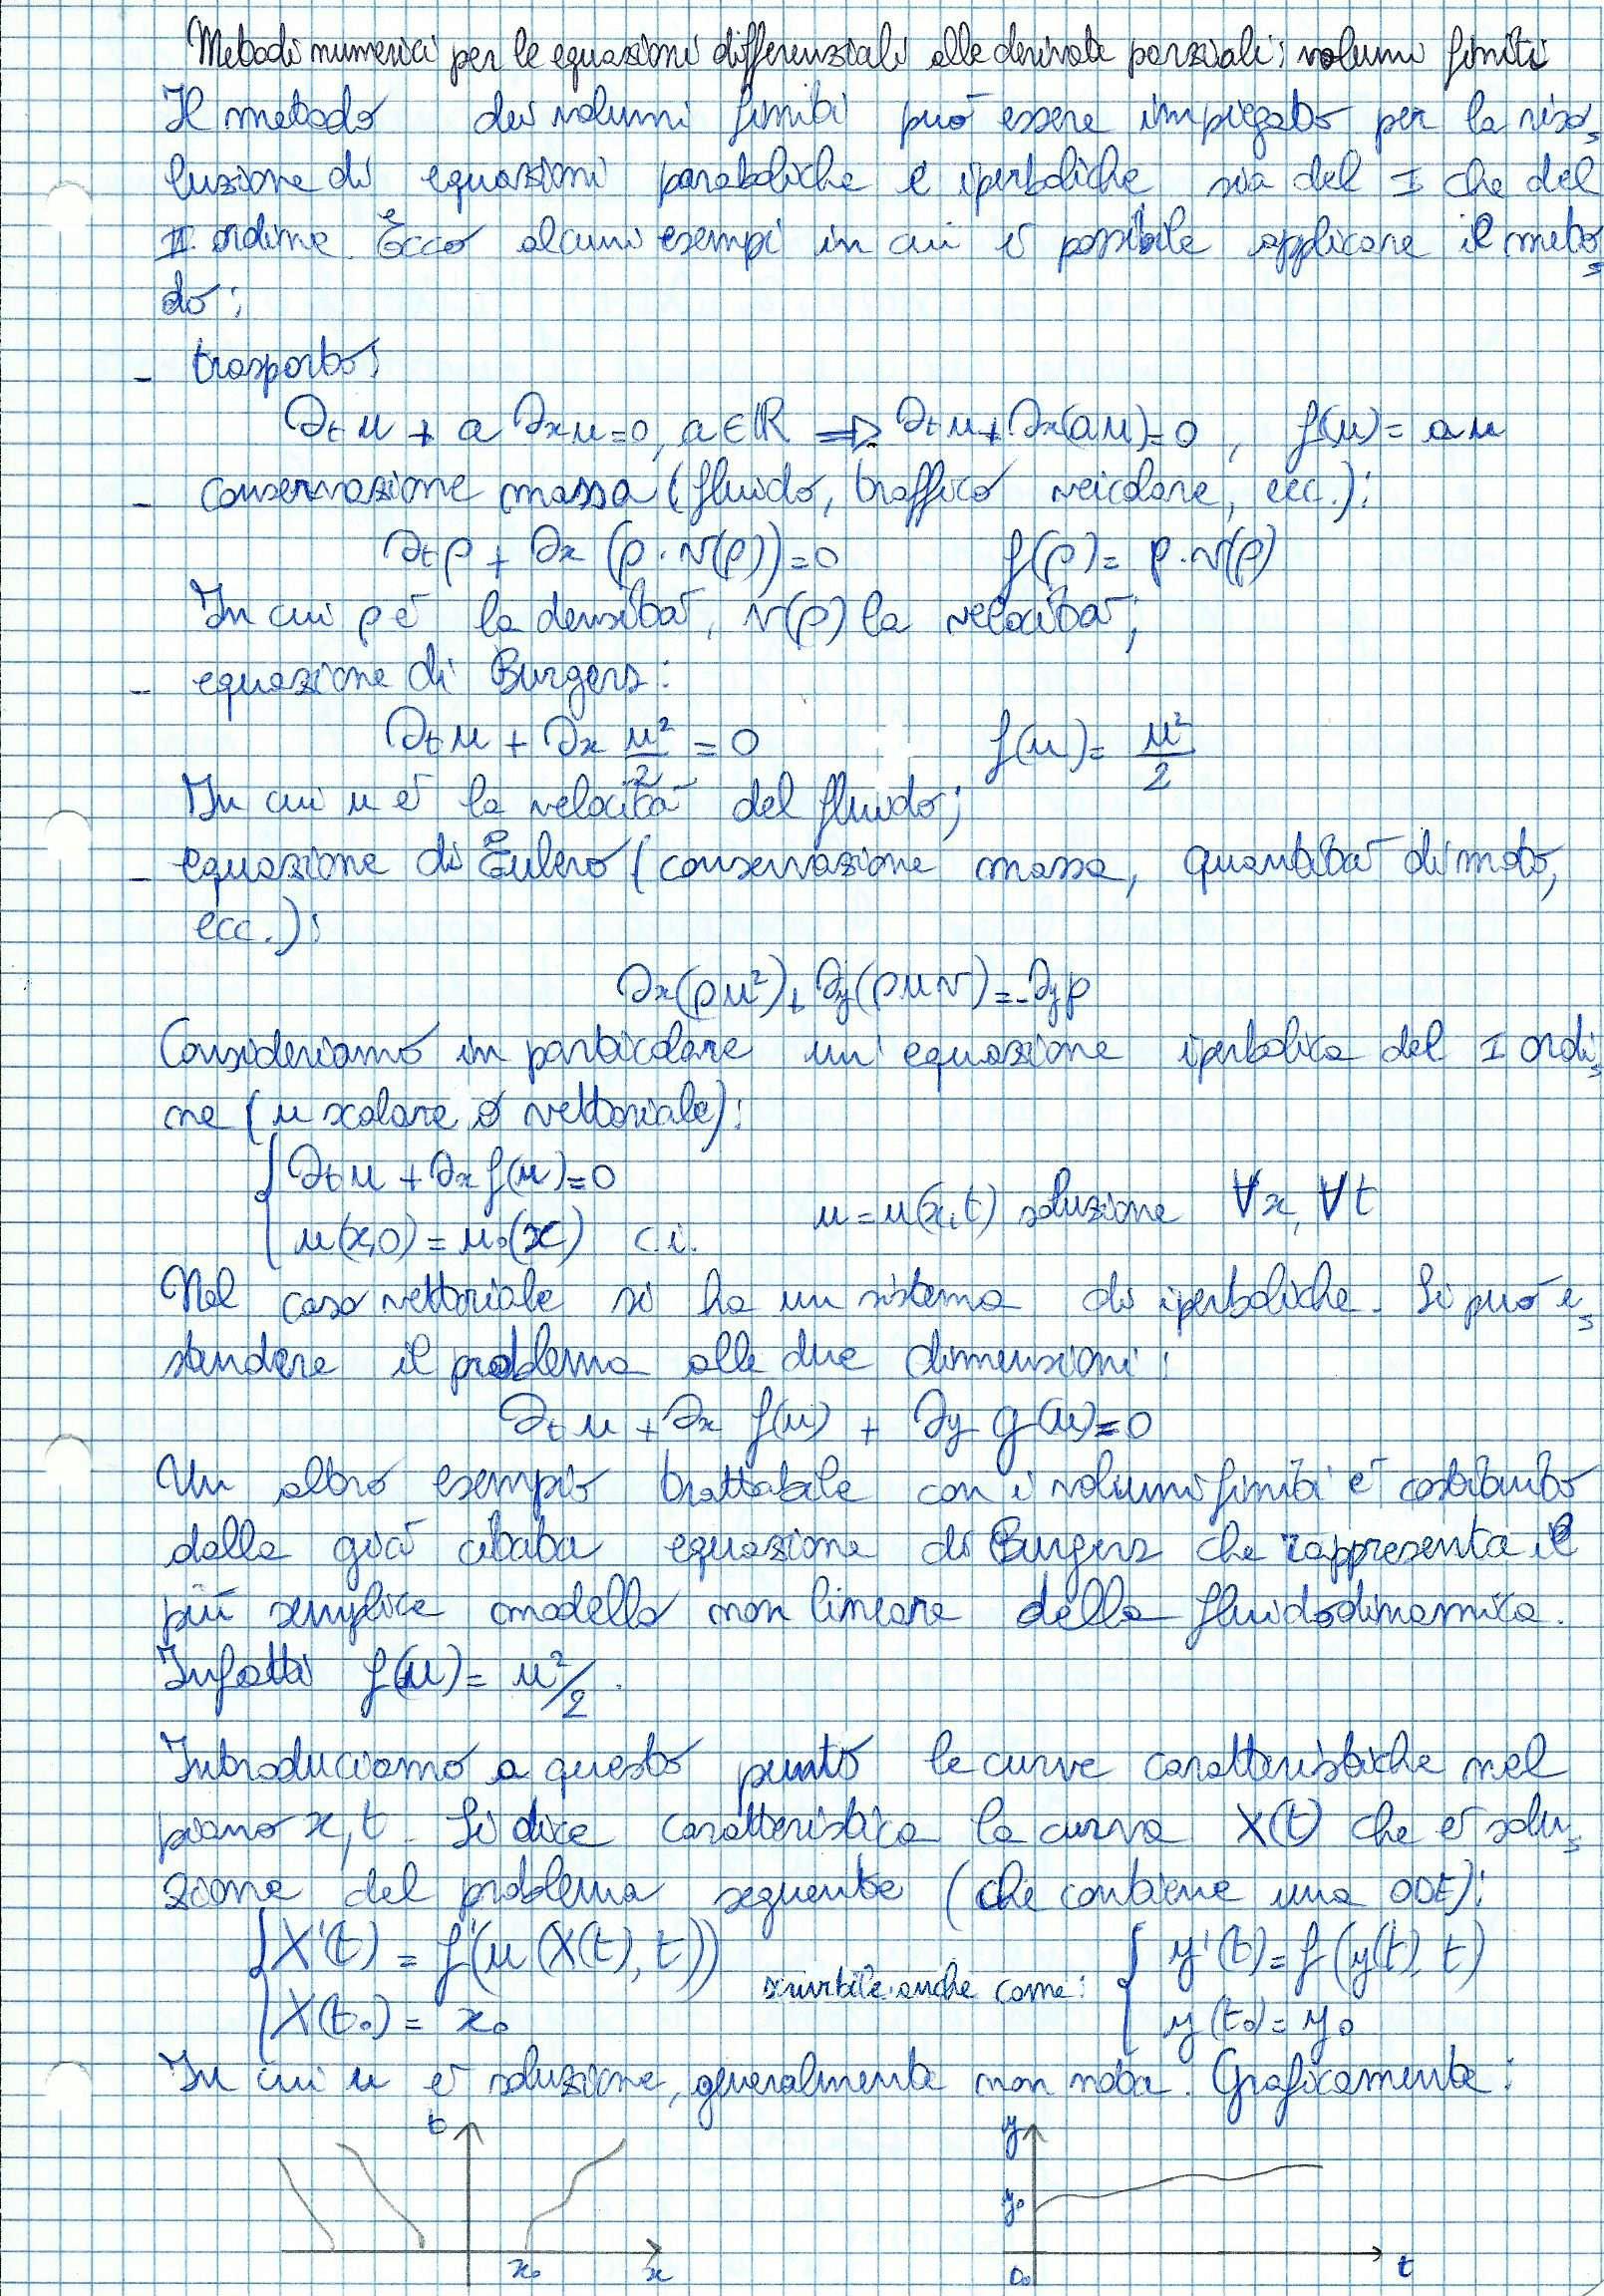 Metodi numerici per le equazioni differenziali alle derivate parziali: volumi finiti
Il metodo dei volumi finiti può essere impiegato per la riso,
luzione di equazioni paraboliche e iperboliche sia del I che del
II ordine. Ecco alcuni esempi in cui è possibile applicare il meto,
do:
- trasporto:
∂t u + a ∂x u = 0, a ∈ ℝ ⇒ ∂t u + ∂x(au) = 0 , f(u) = au
- conservazione massa (fluido, traffico veicolare, ecc.):
∂t ρ + ∂x (ρ · v(ρ)) = 0 f(ρ) = ρ · v(ρ)
In cui ρ è la densità, v(ρ) la velocità;
- equazione di Burgers:
∂t u + ∂x u²/2 = 0 f(u) = u²/2
In cui u è la velocità del fluido;
- equazione di Eulero (conservazione massa, quantità di moto,
ecc.):
∂x(ρu²) + ∂y(ρuv) = -∂y p
Consideriamo in particolare un'equazione iperbolica del I ordi,
ne (u scalare o vettoriale):
{ ∂t u + ∂x f(u) = 0
u(x,0) = u₀(x) c.i. u = u(x,t) soluzione ∀x, ∀t
Nel caso vettoriale si ha un sistema di iperboliche. Si può e,
stendere il problema alle due dimensioni:
∂t u + ∂x f(u) + ∂y g(u) = 0
Un altro esempio trattabile con i volumi finiti è costituito
dalla già citata equazione di Burgers che rappresenta il
più semplice modello non lineare della fluidodinamica.
Infatti f(u) = u²/2.
Introduciamo a questo punto le curve caratteristiche nel
piano x,t. Si dice caratteristica la curva X(t) che è solu,
zione del problema seguente (che contiene una ODE):
{ X'(t) = f'(u(X(t), t)) scrivibile anche come: { y'(t) = f(y(t), t)
X(t₀) = x₀ y(t₀) = y₀
In cui u è soluzione, generalmente non nota. Graficamente:
t y
y₀
x₀ x 0 t